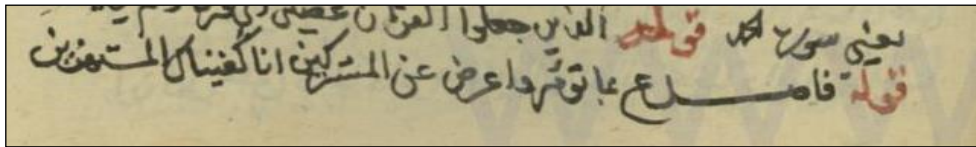 يعني سورة الحمد قوله الذين جعلوا القران عضين
قوله فاصدع بما تؤمر واعرض عن المشركين انا كفيناك المستهزئين